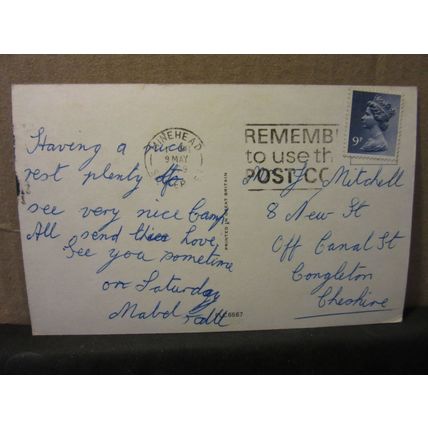 Having a nice
rest plenty to
see very nice Camp
All send their Love
See you sometime
on Saturday
Mabel
MINEHEAD
9 MAY
PRINTED IN GREAT BRITAIN
6667
REMEMB
to use th
POST CO
9P
Mitchell
8 New St
Off Canal St
Congleton
Cheshire